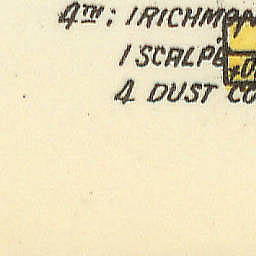 4TH: 1 RICHMO
1 SCALPE
4 DUST CO